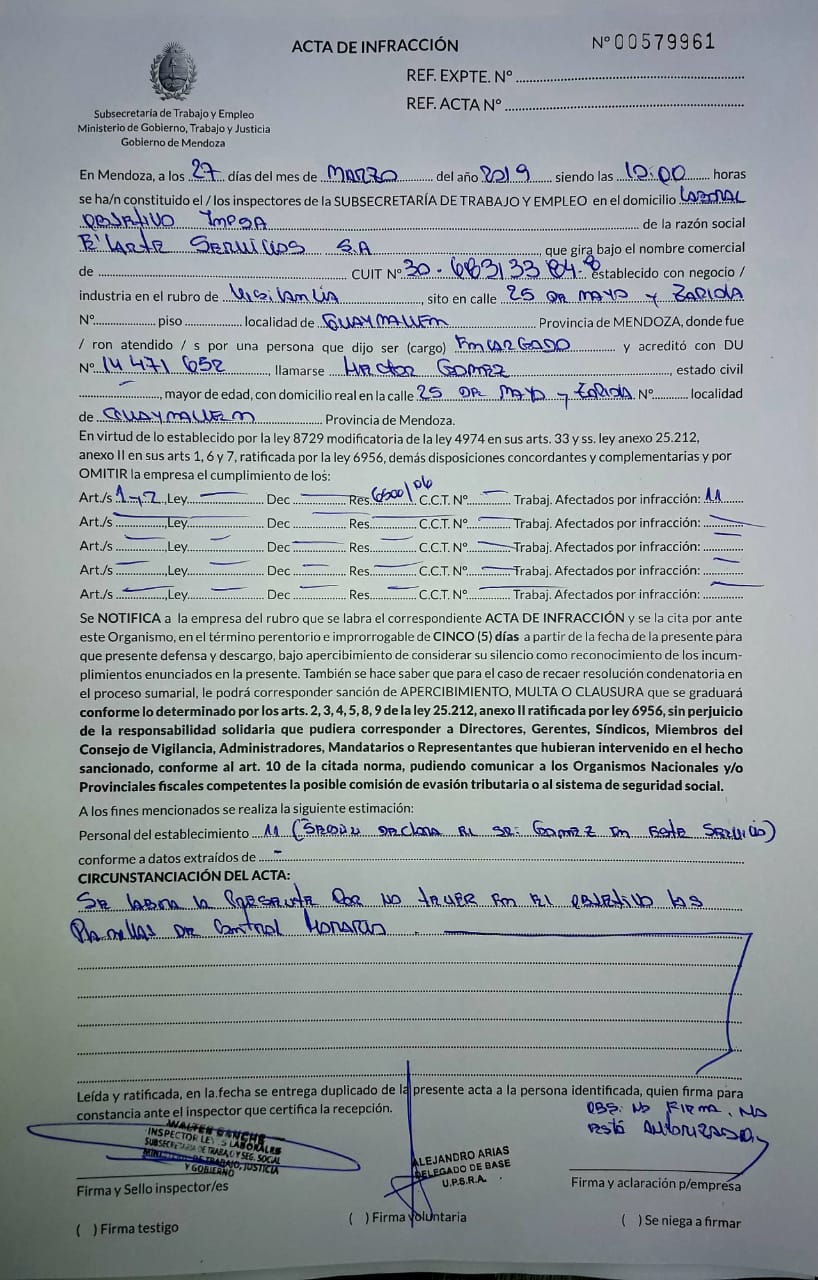 ACTA DE INFRACCIÓN
Nº 00579961
REF. EXPTE. Nº
REF. ACTA Nº
Subsecretaría de Trabajo y Empleo
Ministerio de Gobierno, Trabajo y Justicia
Gobierno de Mendoza
En Mendoza, a los 27 días del mes de MARZO del año 2019 siendo las 12:00 horas
se ha/n constituido el / los inspectores de la SUBSECRETARÍA DE TRABAJO Y EMPLEO en el domicilio LABORAL
OBJETIVO IMPSA de la razón social
SERVICIOS S.A, que gira bajo el nombre comercial
de CUIT Nº 30-68313384-8 establecido con negocio /
industria en el rubro de Vigilancia, sito en calle 25 DE MAYO y ZAPIOLA
Nº piso localidad de GUAYMALLEN Provincia de MENDOZA, donde fue
/ ron atendido / s por una persona que dijo ser (cargo) ENCARGADO y acreditó con DU
Nº 14 471 652, llamarse HECTOR GOMEZ, estado civil
, mayor de edad, con domicilio real en la calle 25 DE MAYO y ZAPIOLA Nº localidad
de GUAYMALLEN Provincia de Mendoza.
En virtud de lo establecido por la ley 8729 modificatoria de la ley 4974 en sus arts. 33 y ss. ley anexo 25.212,
anexo II en sus arts 1, 6 y 7, ratificada por la ley 6956, demás disposiciones concordantes y complementarias y por
OMITIR la empresa el cumplimiento de los:
Art./s 1-2, Ley Dec Res 6500/06 C.C.T. Nº Trabaj. Afectados por infracción: 11
Art./s , Ley Dec Res C.C.T. Nº Trabaj. Afectados por infracción:
Art./s , Ley Dec Res C.C.T. Nº Trabaj. Afectados por infracción:
Art./s , Ley Dec Res C.C.T. Nº Trabaj. Afectados por infracción:
Art./s , Ley Dec Res C.C.T. Nº Trabaj. Afectados por infracción:
Se NOTIFICA a la empresa del rubro que se labra el correspondiente ACTA DE INFRACCIÓN y se la cita por ante
este Organismo, en el término perentorio e improrrogable de CINCO (5) días a partir de la fecha de la presente para
que presente defensa y descargo, bajo apercibimiento de considerar su silencio como reconocimiento de los incum-
plimientos enunciados en la presente. También se hace saber que para el caso de recaer resolución condenatoria en
el proceso sumarial, le podrá corresponder sanción de APERCIBIMIENTO, MULTA O CLAUSURA que se graduará
conforme lo determinado por los arts. 2, 3, 4, 5, 8, 9 de la ley 25.212, anexo II ratificada por ley 6956, sin perjuicio
de la responsabilidad solidaria que pudiera corresponder a Directores, Gerentes, Síndicos, Miembros del
Consejo de Vigilancia, Administradores, Mandatarios o Representantes que hubieran intervenido en el hecho
sancionado, conforme al art. 10 de la citada norma, pudiendo comunicar a los Organismos Nacionales y/o
Provinciales fiscales competentes la posible comisión de evasión tributaria o al sistema de seguridad social.
A los fines mencionados se realiza la siguiente estimación:
Personal del establecimiento 11 (SEGÚN DECLARA EL SR: GOMEZ EN ESTE SERVICIO)
conforme a datos extraídos de -
CIRCUNSTANCIACIÓN DEL ACTA:
SE LABRA LA PRESENTE POR NO TENER EN EL OBJETIVO LAS
PLANILLAS DE CONTROL HORARIO
Leída y ratificada, en la fecha se entrega duplicado de la presente acta a la persona identificada, quien firma para
constancia ante el inspector que certifica la recepción.
OBS: NO FIRMA, NO
ESTÁ AUTORIZADO
WALTER
INSPECTOR LEYES LABORALES
SUBSECRETARIA DE TRABAJO Y SEG. SOCIAL
MINISTERIO DE TRABAJO, JUSTICIA
Y GOBIERNO
ALEJANDRO ARIAS
DELEGADO DE BASE
U.P.S.R.A.
Firma y Sello inspector/es
Firma y aclaración p/empresa
( ) Firma testigo
( ) Firma voluntaria
( ) Se niega a firmar